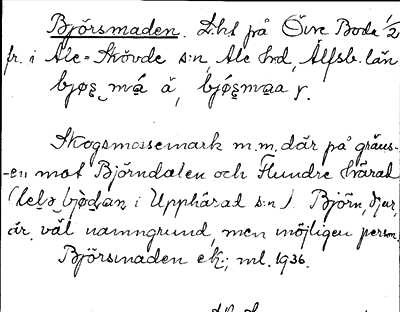 Björsmaden. D:ht på Övre Boda 1/2
fr. i Ale-Skövde s:n, Ale hd, Älfsb. län
bjøʂ må å, bjǿʂmaa y.
Skogsmossemark m.m. där på gräns-
-en mot Björndalen och Flundre härad
(hela bjødan i Upphärad s:n). Björn, djur,
är väl namngrund, men möjligen person.
Björsmaden ek.; ml. 1936.